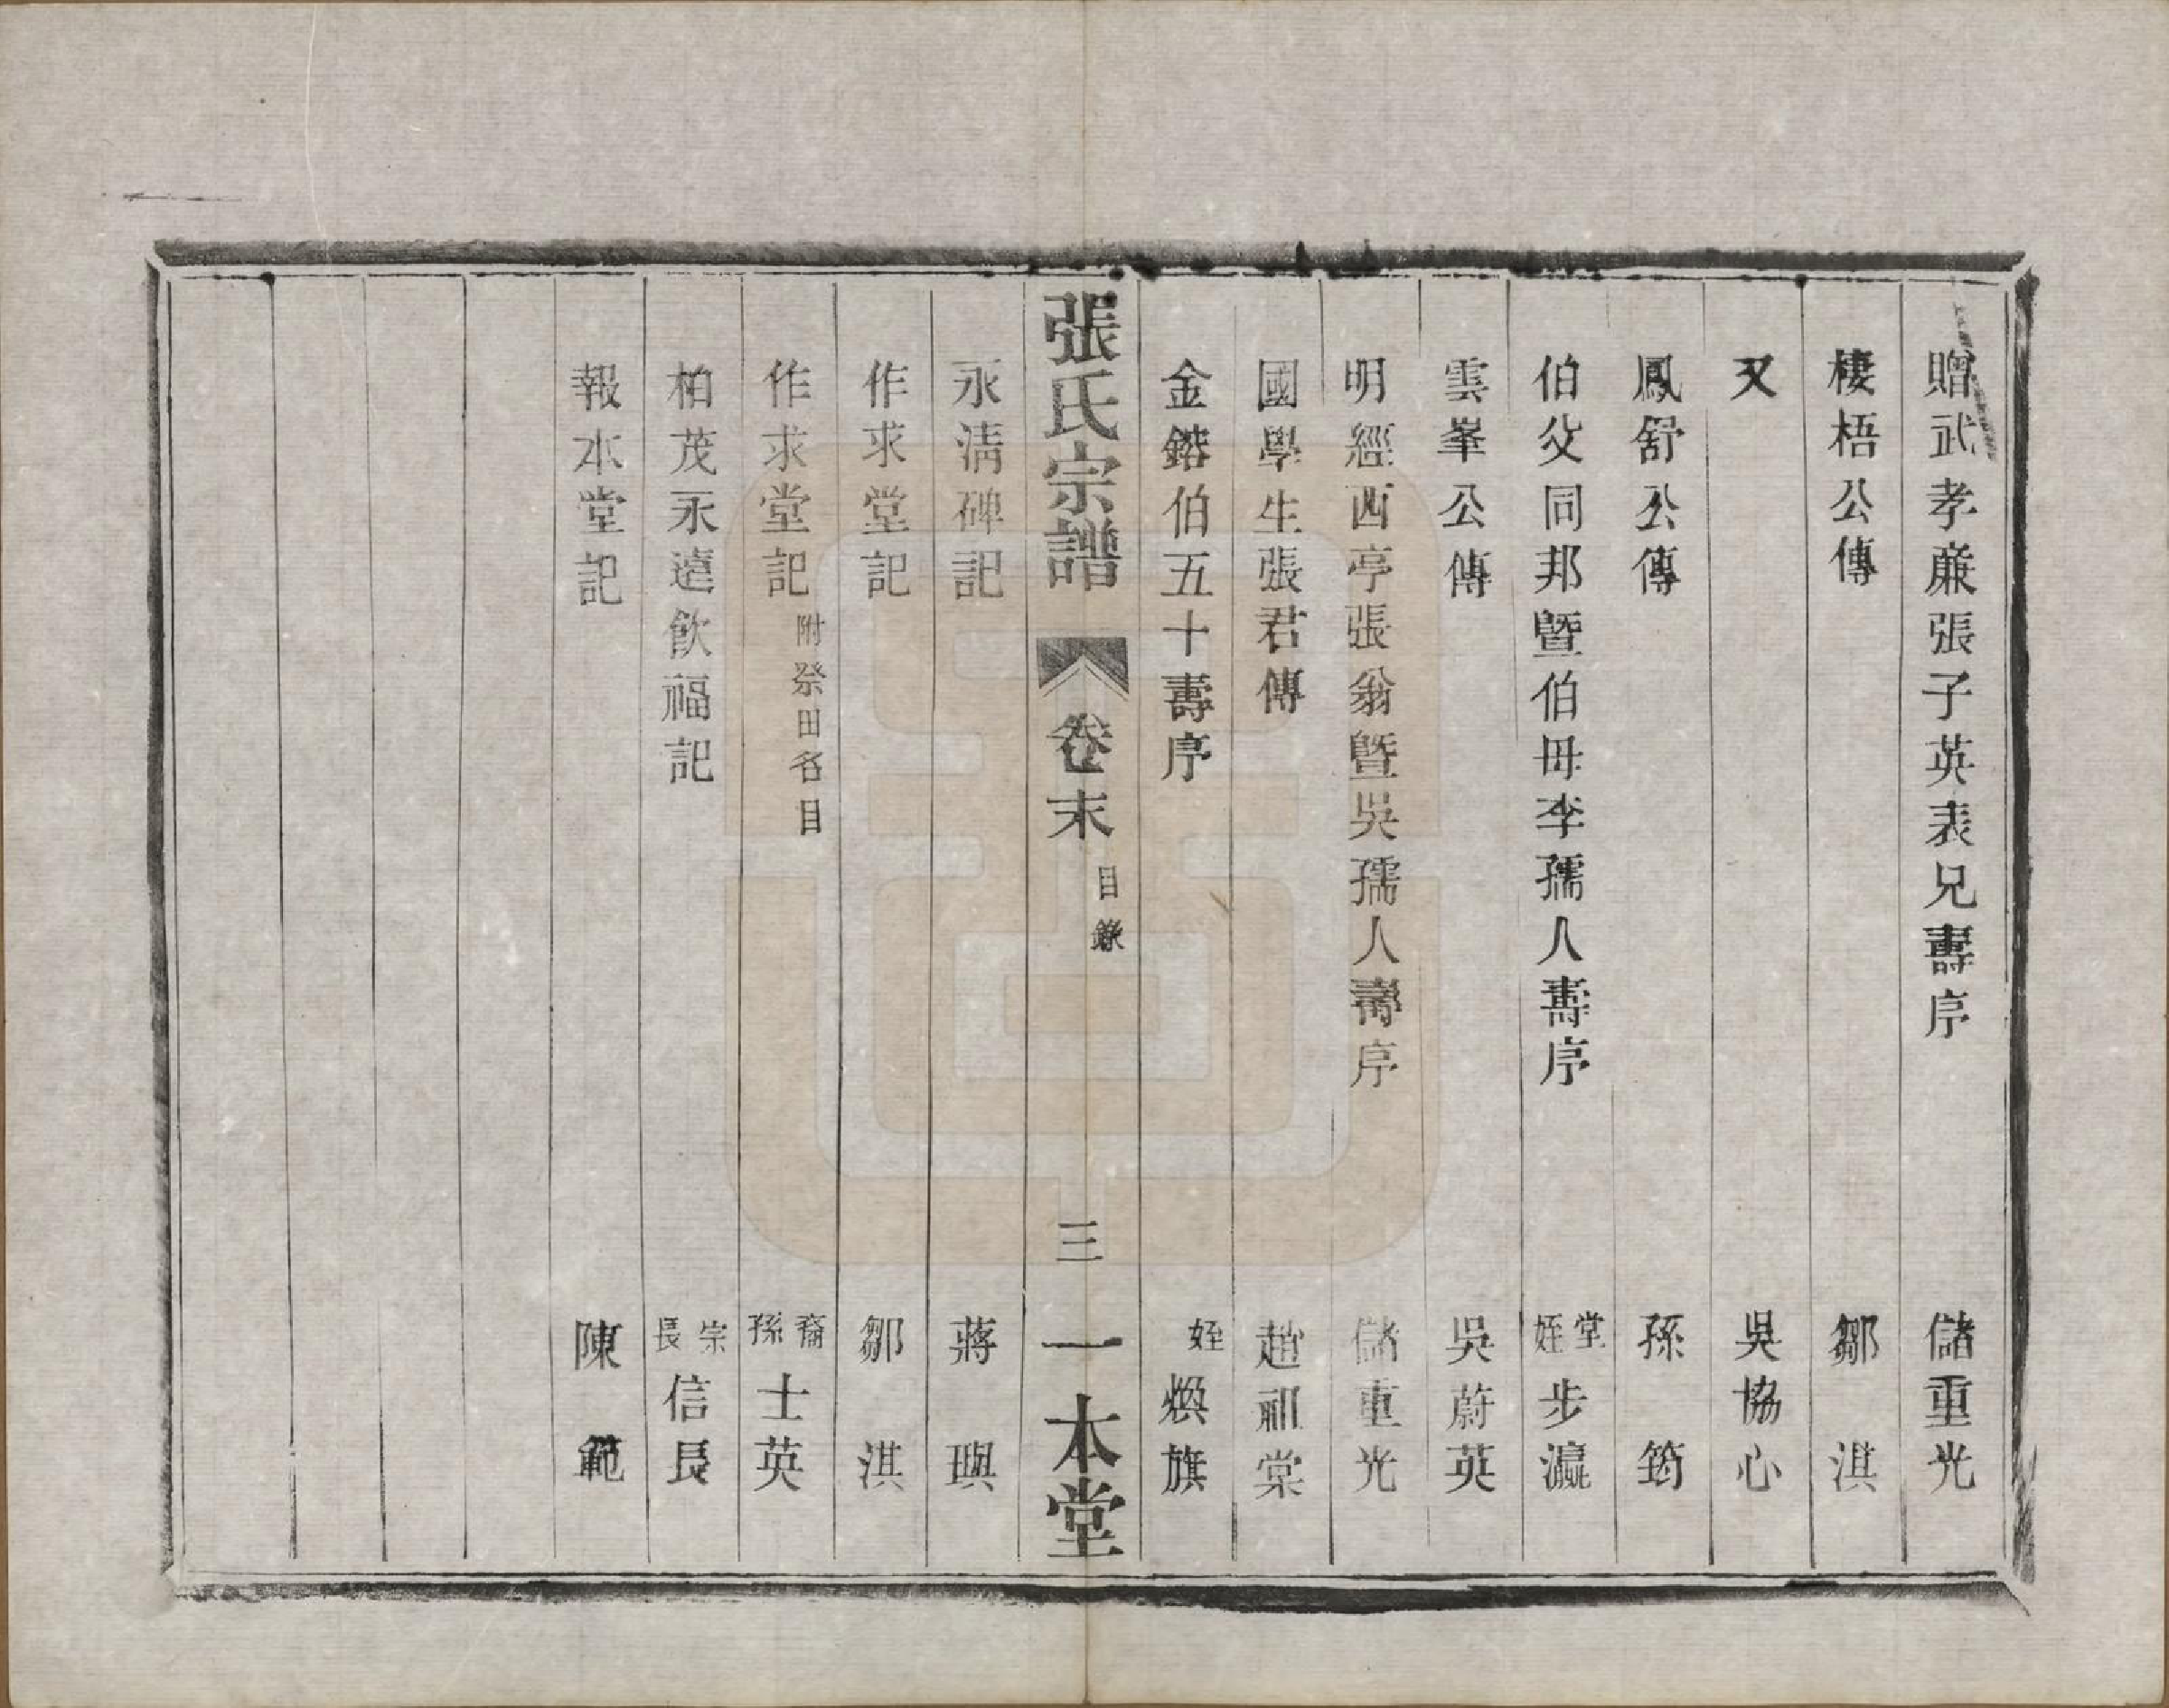 贈武孝廉張子英表兄壽序　儲重光
棲梧公傳　鄒淇
又　吳協心
鳳舒公傳　孫筠
伯父同邦曁伯母李孺人壽序　堂姪步瀛
雲峯公傳　吳蔚英
明經西亭張翁曁吳孺人壽序　儲重光
國學生張君傳　趙祖棠
金鎔伯五十壽序　姪煥旗
張氏宗譜　卷末　目錄　三　一本堂
永淸碑記　蔣璵
作求堂記　鄒淇
作求堂記　附祭田名目　裔孫士英
柏茂永遠飮福記　宗長信長
報本堂記　陳範